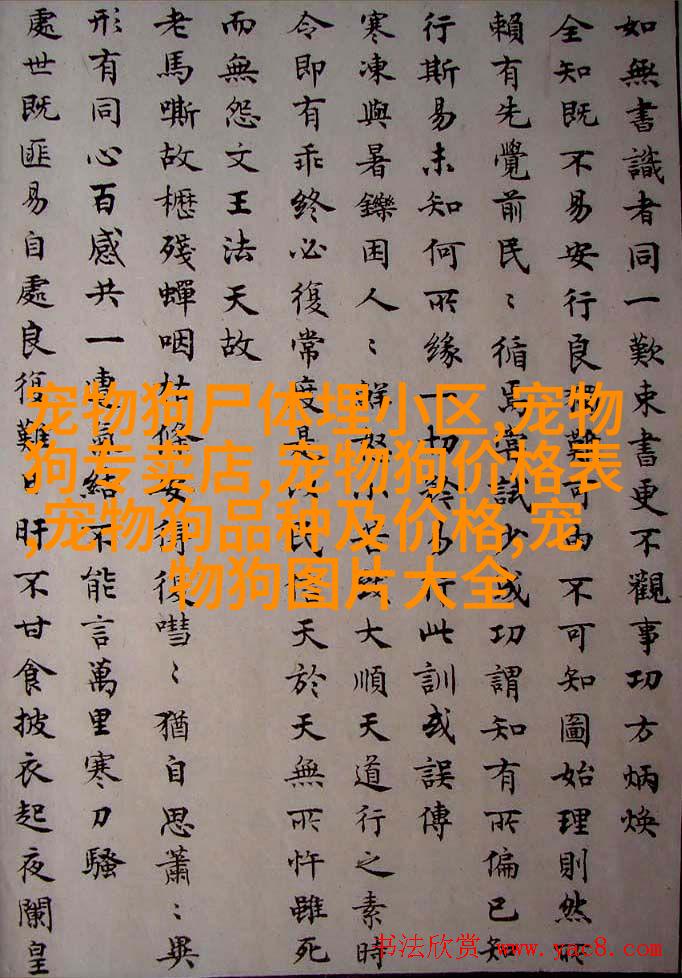 如無書識者同一歎束書更不觀事功方炳煥
全知既不易安行良難可不可知圖始理則然所
賴有先覺前民〻循焉嘗試少或功謂知有所偏已知
行斯易未知何所緣一切易行此訓或誤傳
寒凍與暑鑠困人〻大順天道行之素時
令即有乖終必復常度是民天於天無所忤雖死
而無怨文王法天故
老馬嘶故櫪殘蟬咽枯條安得復嘒〻猶自思蕭〻異
形有同心百感共一氣結不能言萬里寒刀騷
處世既匪易自處良復難日旰不甘食披衣起夜闌皇
宠物狗尸体埋小区,宠物
狗专卖店,宠物狗价格表
,宠物狗品种及价格,宠
物狗图片大全
书法欣赏 www.yac8.com